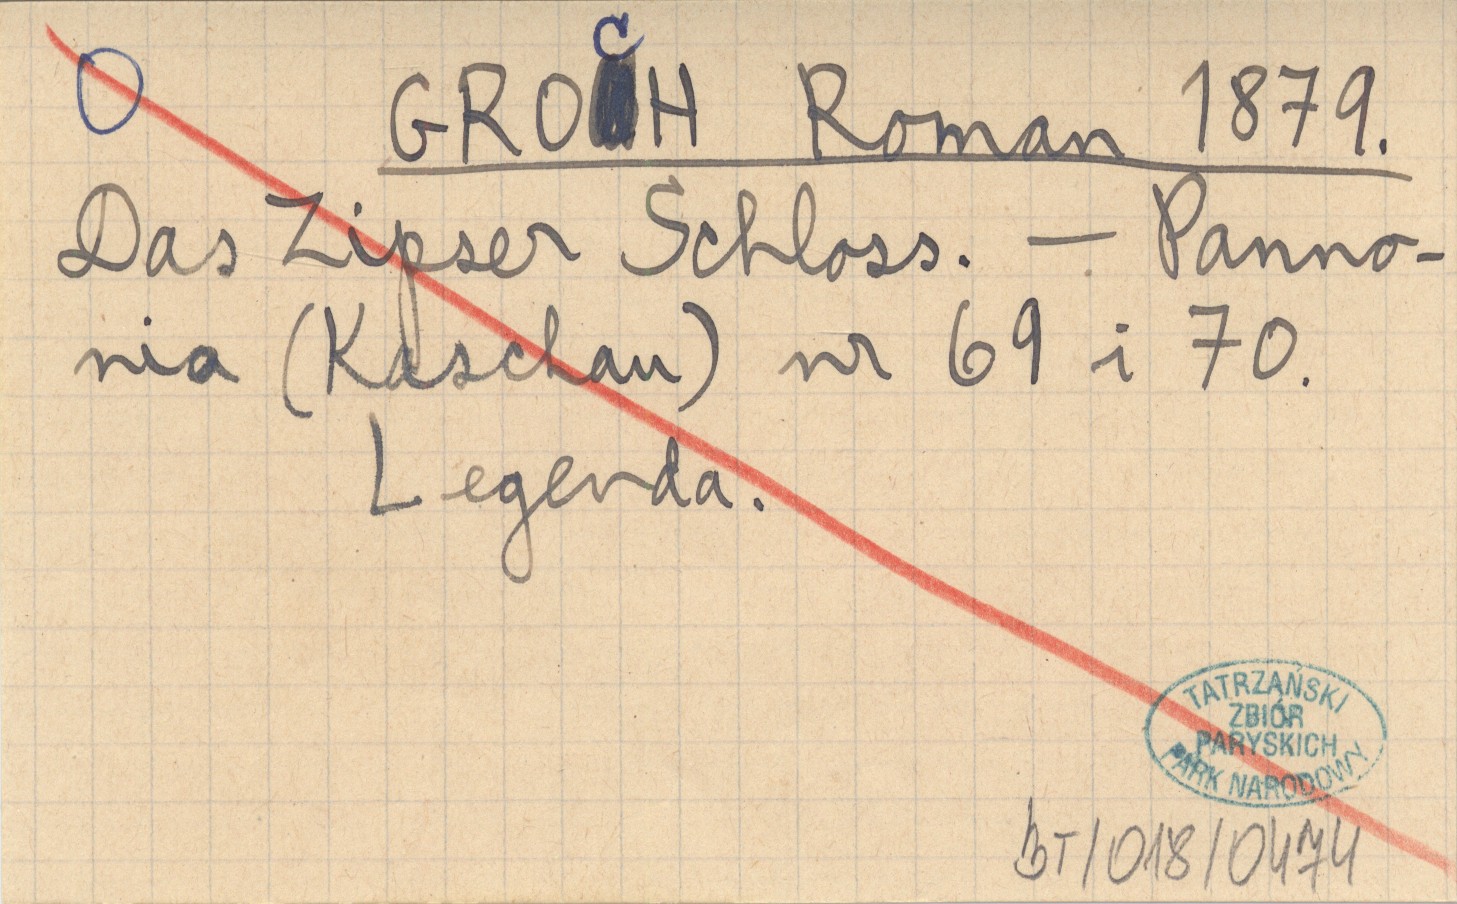 GROCH Roman 1879.
Das Zipser Schloss. — Panno-
nia (Kaschau) nr 69 i 70.
Legenda.
TATRZAŃSKI
ZBIÓR
PARYSKICH
PARK NARODOWY
BT/018/0474